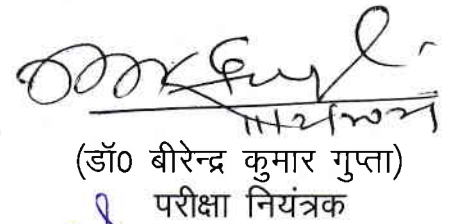 (डॉ0 बीरेन्द्र कुमार गुप्ता)
परीक्षा नियंत्रक